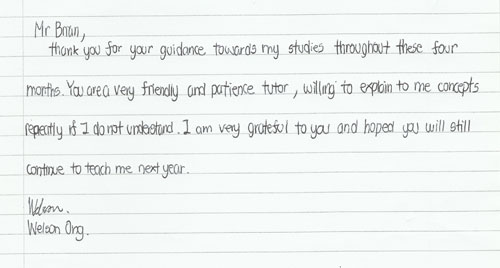 Mr Brian,
thank you for your guidance towards my studies throughout these four
months. You are a very friendly and patience tutor, willing to explain to me concepts
repeatly if I do not understand. I am very grateful to you and hoped you will still
continue to teach me next year.
Welson.
Welson Ong.